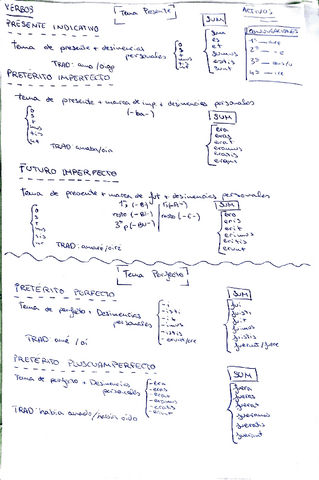 VERBOS
[Tema Presente]
ACTIVOS
PRESENTE INDICATIVO
SUM
CONJUGACIONES
1º — are
2º — e
3º
4º — ire
Tema de presente + desinencias personales
o
s
t
mus
tis
nt
sum
es
est
sumus
estis
sunt
TRAD: amo / oigo
PRETÉRITO IMPERFECTO
Tema de presente + marca de imp. + desinencias personales
(-ba-)
o
s
t
mus
tis
nt
SUM
era
eras
erat
eramus
eratis
erant
TRAD: amaba/oía
FUTURO IMPERFECTO
Tema de presente + marca de fut + desinencias personales
o
s
t
mus
tis
nt
1ª (-B-)
resto (-BI-)
3ª p (-BU-)
resto (-E-)
SUM
ero
eris
erit
erimus
eritis
erunt
TRAD: amaré/oiré
[Tema Perfecto]
PRETÉRITO PERFECTO
Tema de perfecto + Desinencias personales
-i
-isti
-it
-imus
-istis
-erunt/ere
SUM
fui
fuisti
fuit
fuimus
fuistis
fuerunt/fuere
TRAD: amé / oí
PRETÉRITO PLUSCUAMPERFECTO
Tema de perfecto + Desinencias personales
-eram
-eras
-erat
-eramus
-eratis
-erant
SUM
fuera
fueras
fuerat
fueramus
fueratis
fuerant
TRAD: había amado/había oído